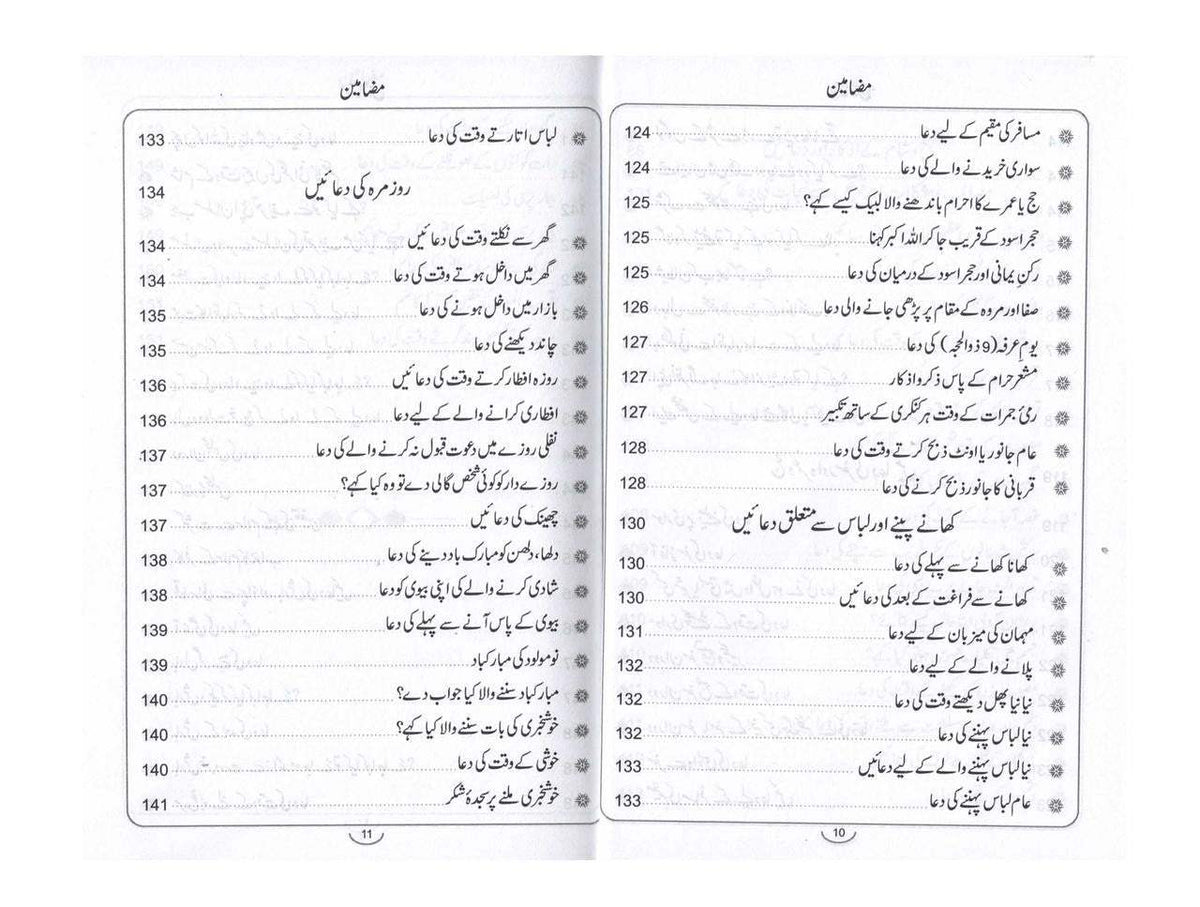 مضامین
مسافر کی مقیم کے لیے دعا 124
سواری خریدنے والے کی دعا 124
حج یا عمرے کا احرام باندھنے والا لبیک کیسے کہے؟ 125
حجر اسود کے قریب جا کر اللہ اکبر کہنا 125
رکن یمانی اور حجر اسود کے درمیان کی دعا 125
صفا اور مروہ کے مقام پر پڑھی جانے والی دعا 126
یوم عرفہ (9 ذوالحجہ) کی دعا 127
مشعر حرام کے پاس ذکر و اذکار 127
رمئ جمرات کے وقت ہر کنکری کے ساتھ تکبیر 127
عام جانور یا اونٹ ذبح کرتے وقت کی دعا 128
قربانی کا جانور ذبح کرنے کی دعا 128
کھانے پینے اور لباس سے متعلق دعائیں 130
کھانا کھانے سے پہلے کی دعا 130
کھانے سے فراغت کے بعد کی دعائیں 130
مہمان کی میزبان کے لیے دعا 131
پلانے والے کے لیے دعا 132
نیا نیا پھل دیکھتے وقت کی دعا 132
نیا لباس پہننے کی دعا 132
نیا لباس پہننے والے کے لیے دعائیں 133
عام لباس پہننے کی دعا 133
10
مضامین
لباس اتارتے وقت کی دعا 133
روزمرہ کی دعائیں 134
گھر سے نکلتے وقت کی دعائیں 134
گھر میں داخل ہوتے وقت کی دعا 134
بازار میں داخل ہونے کی دعا 135
چاند دیکھنے کی دعا 135
روزہ افطار کرتے وقت کی دعائیں 136
افطاری کرانے والے کے لیے دعا 136
نفلی روزے میں دعوت قبول نہ کرنے والے کی دعا 137
روزے دار کو کوئی شخص گالی دے تو وہ کیا کہے؟ 137
چھینک کی دعائیں 137
دلھا، دلھن کو مبارک باد دینے کی دعا 138
شادی کرنے والے کی اپنی بیوی کو دعا 138
بیوی کے پاس آنے سے پہلے کی دعا 139
نومولود کی مبارکباد 139
مبارکباد سننے والا کیا جواب دے؟ 140
خوشخبری کی بات سننے والا کیا کہے؟ 140
خوشی کے وقت کی دعا 140
خوشخبری ملنے پر سجدۂ شکر 141
11